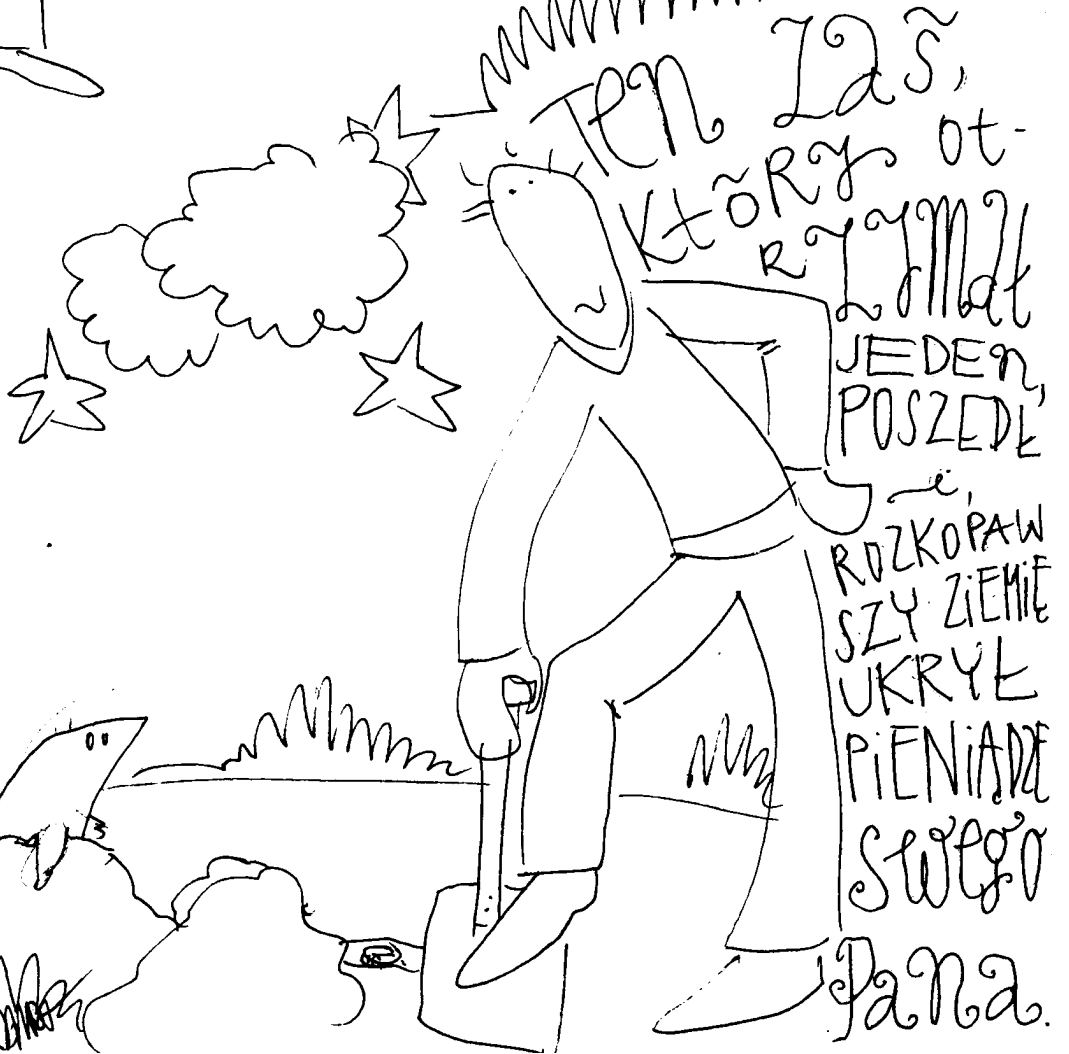 Ten zaś,
który ot-
rzymał
JEDEN,
POSZEDŁ
i,
ROZKOPAW
SZY ZIEMIĘ
UKRYŁ
PiENiĄDZE
swego
Pana.